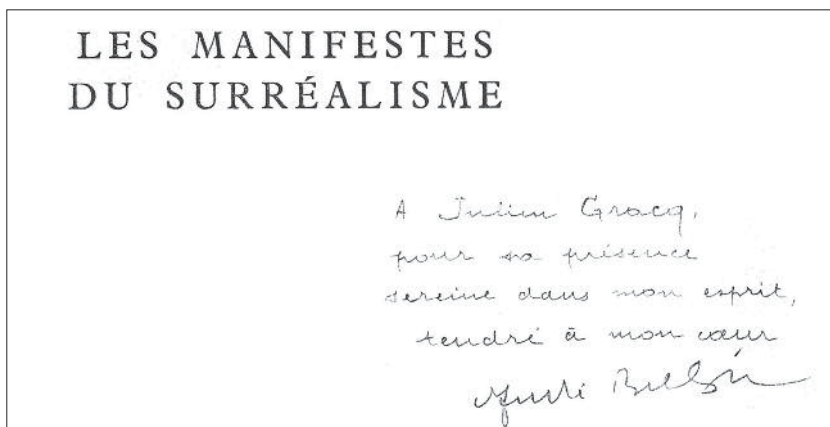 LES MANIFESTES
DU SURRÉALISME
A Julien Gracq,
pour sa présence
sereine dans mon esprit,
tendre à mon cœur
André Breton